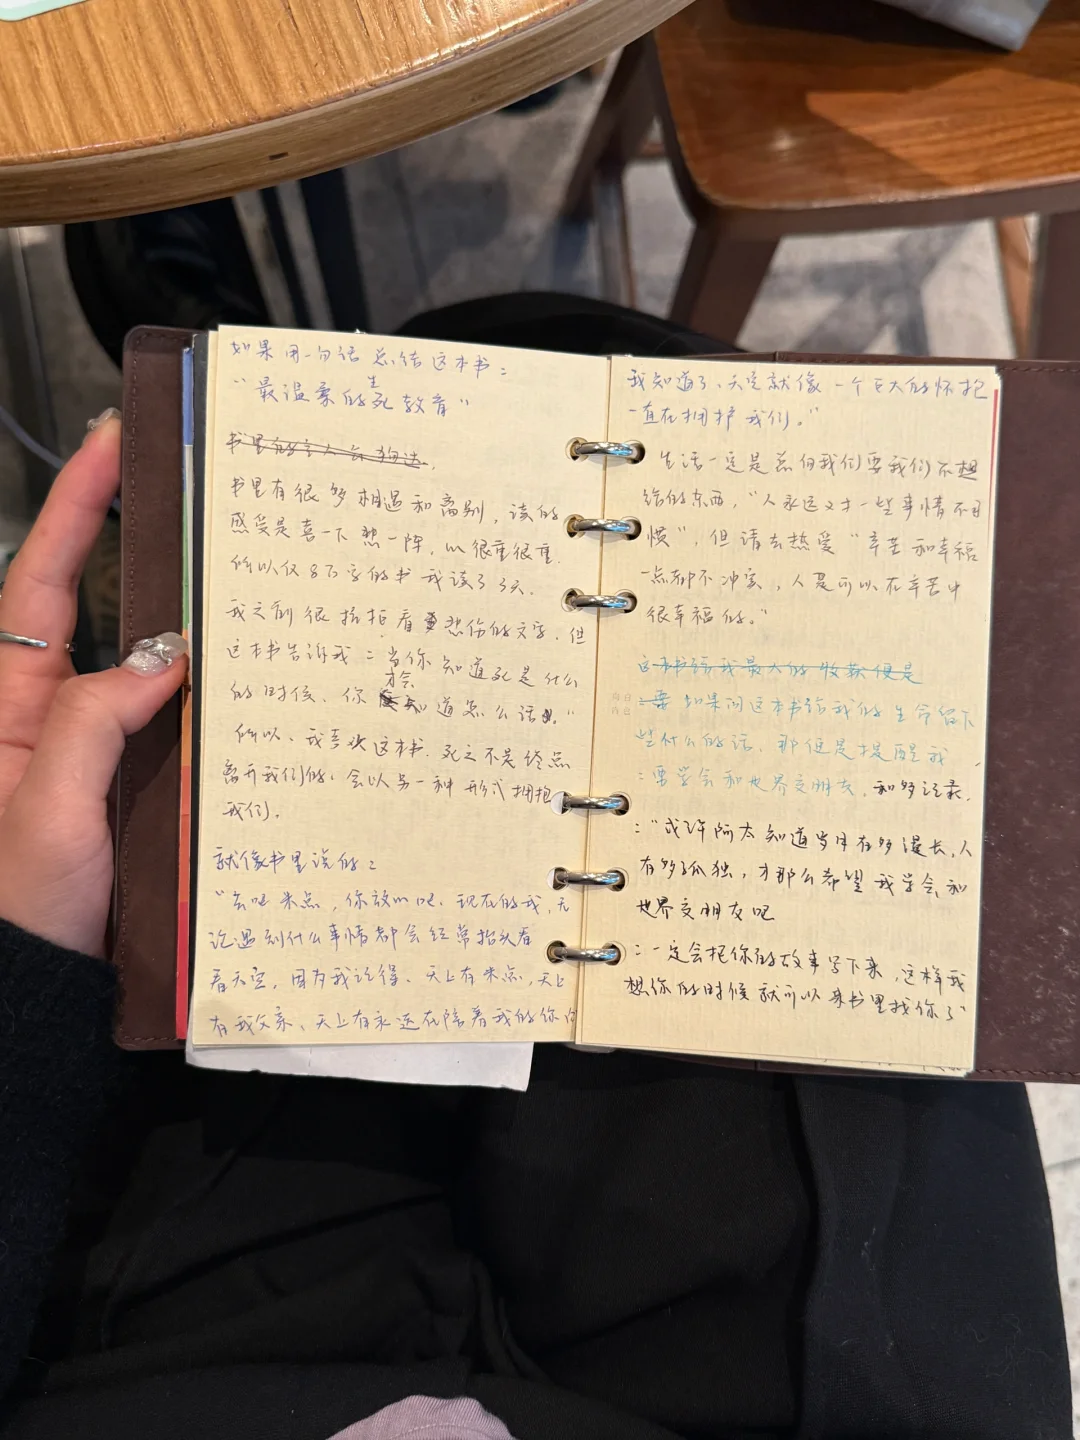 如果用一句话总结这本书：
“最温柔的生死教育”
书里的主人会
书里有很多相遇和离别，读的
感受是喜一下悲一阵，以很重很重.
所以仅8万字的书我读了3天.
我之前很抗拒看悲伤的文字，但
这本书告诉我：当你知道死是什么
的时候、你才会知道怎么活。”
所以、我喜欢这本书. 死亡不是终点
离开我们的，会以另一种形式拥抱
我们.
就像书里说的：
“去吧米点，你放心吧. 现在的我，无
论遇到什么事情都会经常抬头看
看天空，因为我记得. 天上有米点，天上
有我父亲、天上有永远在陪着我的你们
我知道了、天空就像一个巨大的怀抱
一直在拥护我们.”
生活一定是总向我们要我们不想
给的东西，“人永远对一些事情不习
惯”，但请去热爱“辛苦和幸福
一点都不冲突，人是可以在辛苦中
很幸福的。”
这本书给我最大的收获便是
：要 如果问这本书给我的生命留下
些什么的话，那便是提醒我
：要学会和世界交朋友，和多记录.
：“或许阿太知道岁月有多漫长，人
有多孤独，才那么希望我学会和
世界交朋友吧
：一定会把你的故事写下来，这样我
想你的时候就可以来书里找你了”